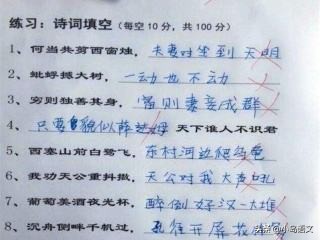 练习：诗词填空（每空 10 分，共 100 分）
1、何当共剪西窗烛，夫妻对坐到天明
2、蚍蜉撼大树，一动也不动
3、穷则独善其身，富则妻妾成群
4、只要貌似薛楚姆 天下谁人不识君
5、西塞山前白鹭飞，东村河边爬乌龟
6、我劝天公重抖擞，天公对我大声吼
7、葡萄美酒夜光杯，醉倒好汉一大堆
8、沉舟侧畔千机过，孔雀开屏花
头条 @小岛语文